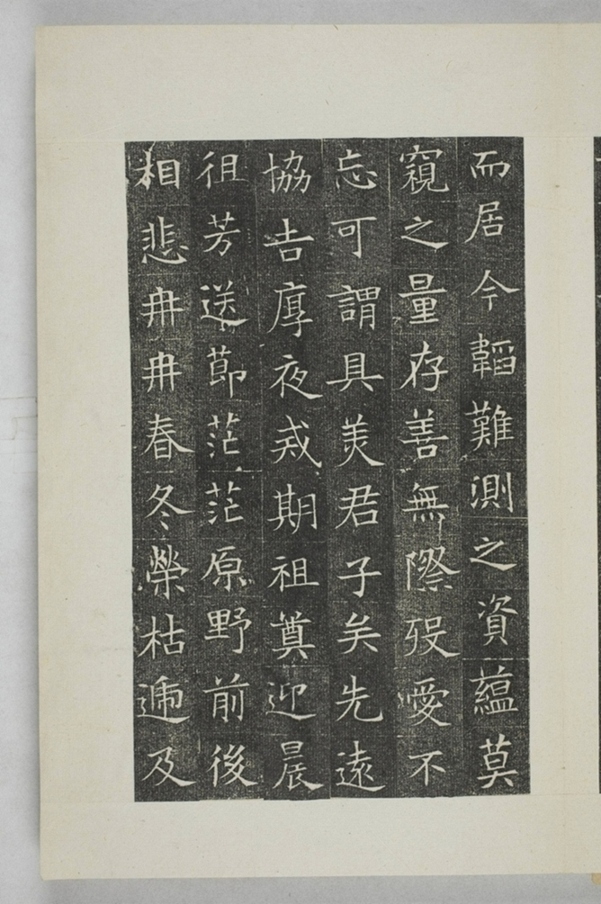 而居今韜難測之資蘊莫
窺之量存善無際歿愛不
忘可謂具美君子矣先遠
協吉厚夜戒期祖奠迎晨
徂芳送節茫茫原野前後
相悲冉冉春冬榮枯遞及